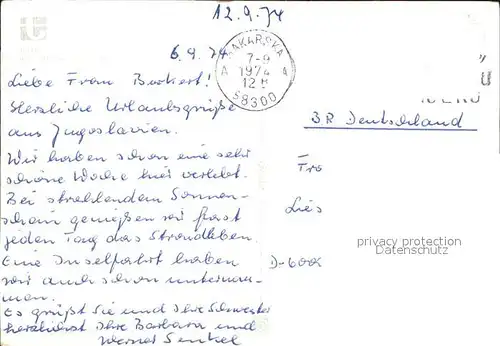 12.9.74
6.9.74
MAKARSKA
7-9
1974
12 H
58300
A a
Liebe Frau Burkert!
Herzliche Urlaubsgrüße
aus Jugoslavien.
Wir haben schon eine sehr
schöne Woche hier verlebt.
Bei strahlendem Sonnen-
schein genießen wir fast
jeden Tag das Strandleben.
Eine Inselfahrt haben
wir auch schon unternom-
men.
Es grüßt Sie und Ihre Schwester
herzlichst Ihre Barbara und
Werner Senkel
BR Deutschland
Fra
Lies
privacy protection
Datenschutz
D-6008